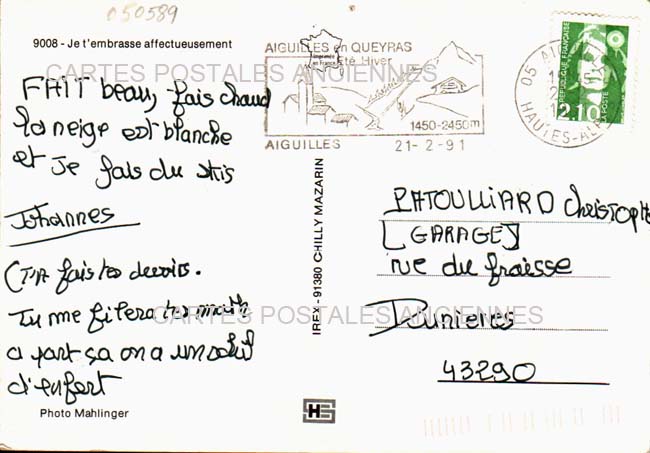 050589
9008 - Je t'embrasse affectueusement
AIGUILLES en QUEYRAS
Été Hiver
1450-2450m
AIGUILLES 21-2-91
05 AIGUILLES
HAUTES-ALPES
RÉPUBLIQUE FRANÇAISE
2,10
LA POSTE
CARTES POSTALES ANCIENNES
FAIT beau, fais chaud
la neige est blanche
et je fais du skis
Johannes
(T'A fais tes devoirs.
Tu me filera tes math
a part ça on a un soleil
d'enfert
Photo Mahlinger
IREX - 91380 CHILLY MAZARIN
PATOULLIARD Christophe
[GARAGE]
rue du fraisse
Dunieres
43290
CARTES POSTALES ANCIENNES